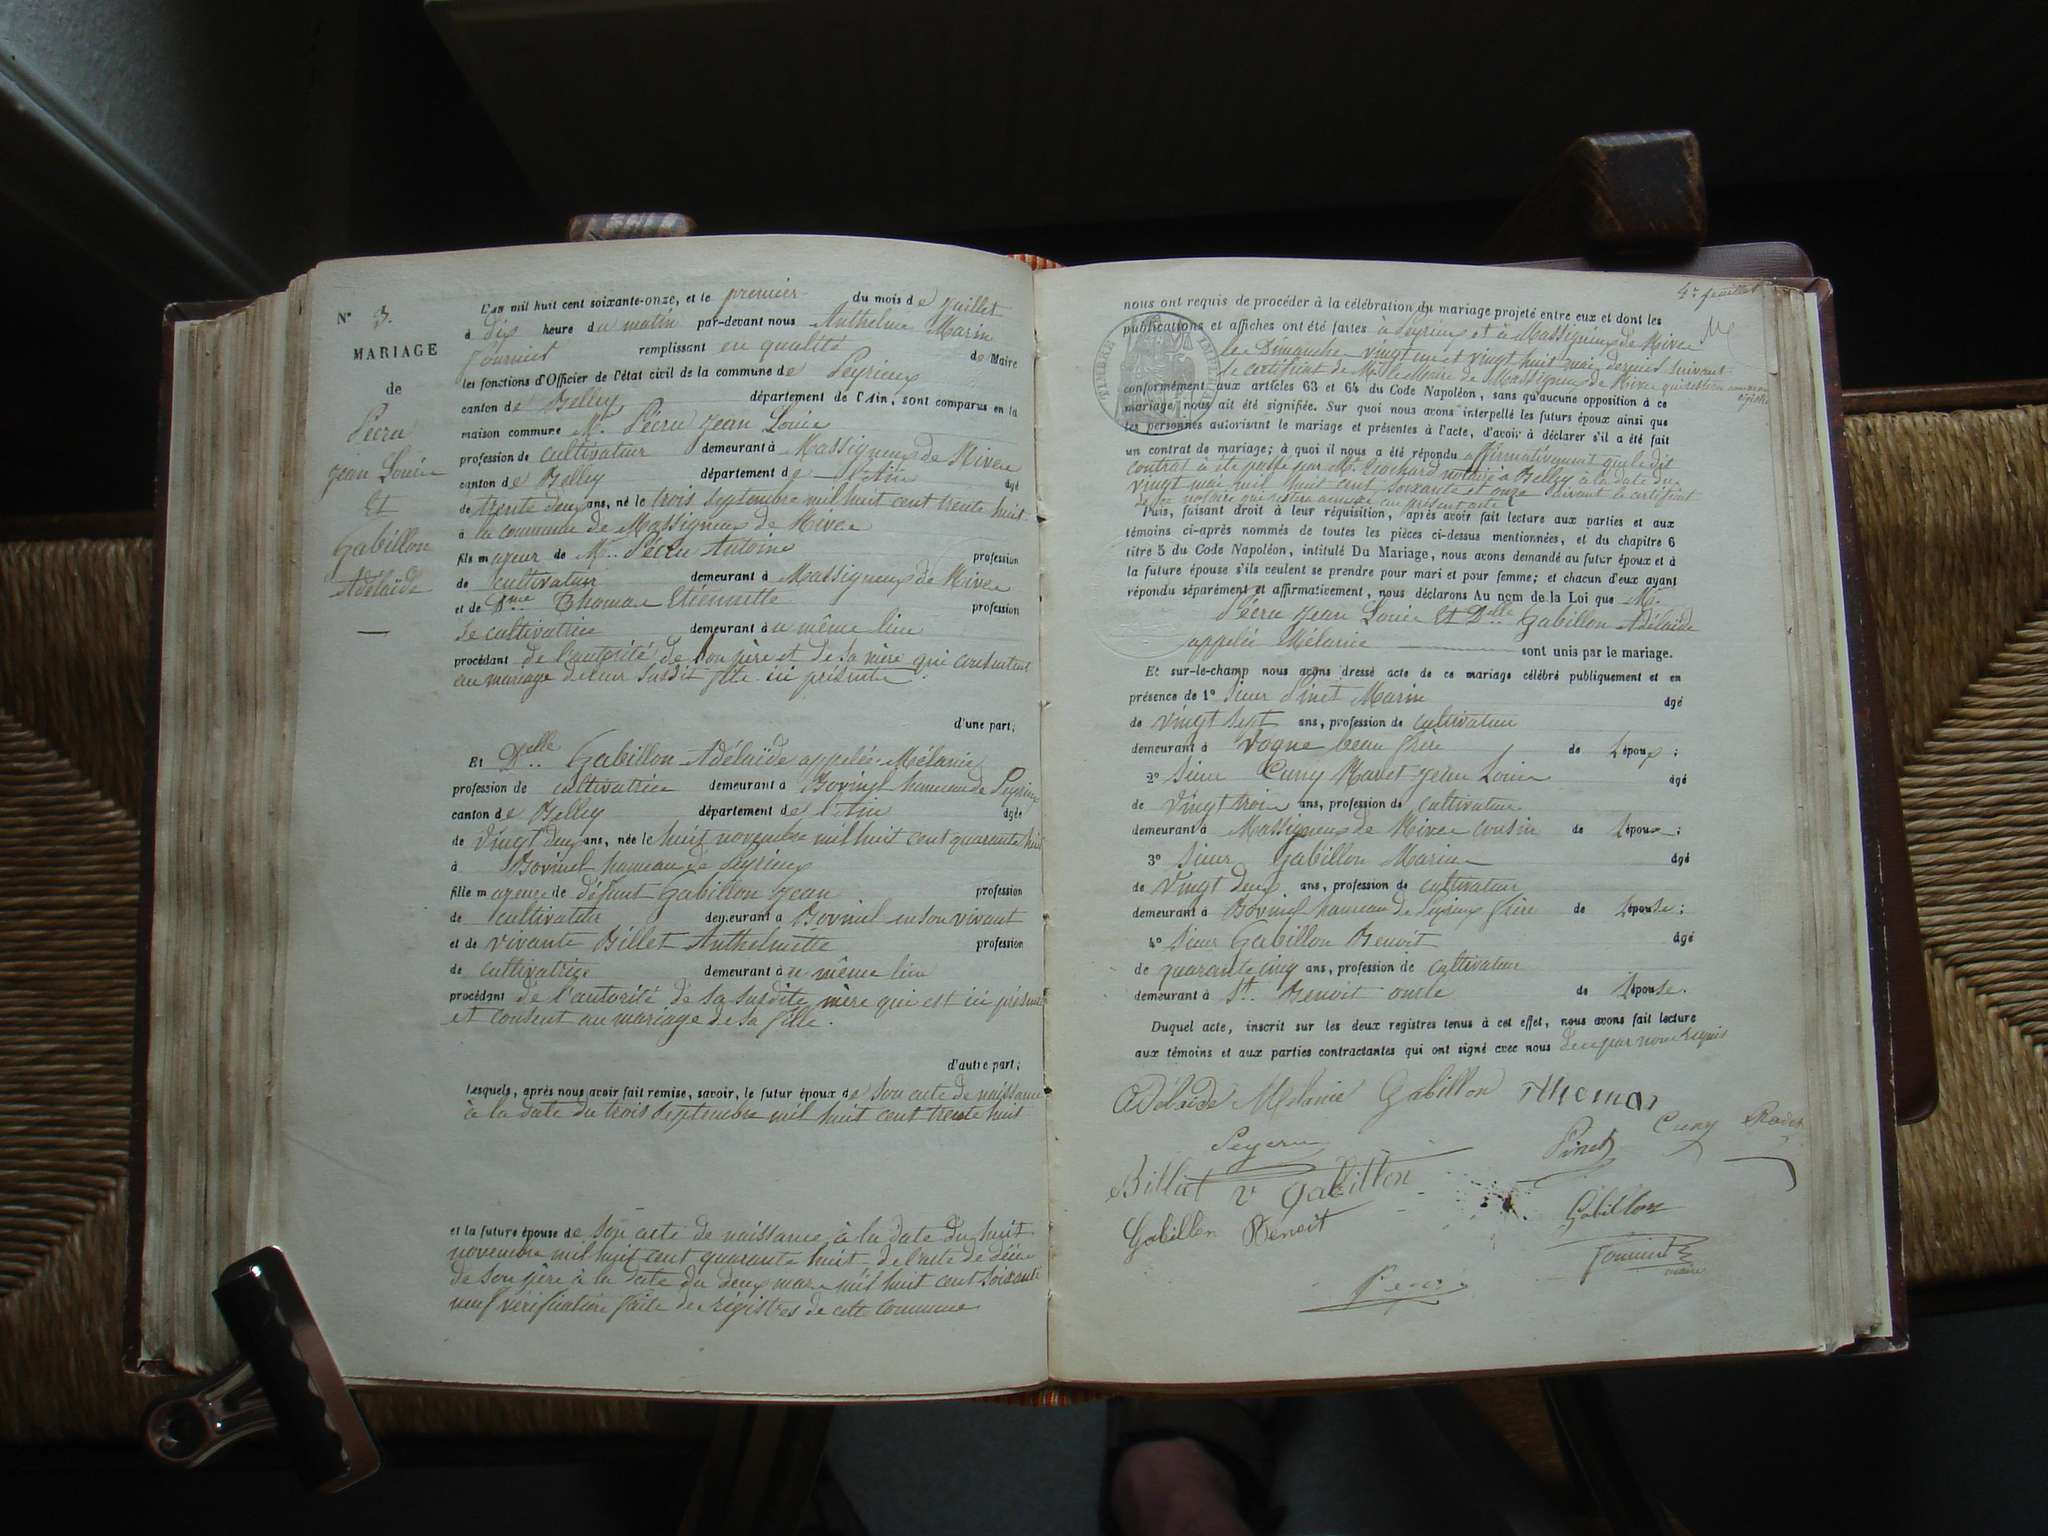 N° 3.
MARIAGE
de
Pécru
Jean Louis
Et
Gabillon
Adélaïde
L'an mil huit cent soixante-onze, et le premier du mois de Juillet
à dix heure du matin par-devant nous Anthelme Marin
Fournier remplissant en qualité de Maire
les fonctions d'Officier de l'état civil de la commune de Peyrieux
canton de Belley département de l'Ain, sont comparus en la
maison commune Mr. Pécru Jean Louis
profession de cultivateur demeurant à Massigneux de Rives
canton de Belley département de l'Ain âgé
de trente deux ans, né le trois septembre mil huit cent trente huit
à la commune de Massigneux de Rives
fils majeur de Mr. Pécru Antoine profession
de cultivateur demeurant à Massigneux de Rives
et de Dme Thomas Etiennette profession
de cultivatrice demeurant au même lieu
procédant de l'autorité de son père et de sa mère qui consentent
au mariage de leur susdit fils ici présents.
d'une part;
Et Delle Gabillon Adélaïde appelée Mélanie
profession de cultivatrice demeurant à Bovinel hameau de Peyrieux
canton de Belley département de l'Ain âgée
de vingt deux ans, née le huit novembre mil huit cent quarante huit
à Bovinel hameau de Peyrieux
fille majeure de défunt Gabillon Jean profession
de cultivateur demeurant à Bovinel en son vivant
et de vivante Billet Anthelmette profession
de cultivatrice demeurant au même lieu
procédant de l'autorité de sa susdite mère qui est ici présente
et consent au mariage de sa fille.
d'autre part;
Lesquels, après nous avoir fait remise, savoir, le futur époux de son acte de naissance
à la date du trois septembre mil huit cent trente huit
et la future épouse de son acte de naissance à la date du huit
novembre mil huit cent quarante huit de l'acte de décès
de son père à la date du deux mars mil huit cent soixante
neuf vérification faite des régistres de cette commune
4e feuillet
nous ont requis de procéder à la célébration du mariage projeté entre eux et dont les
publications et affiches ont été faites à Peyrieux et à Massigneux de Rives
les Dimanches vingt un et vingt huit mai derniers suivant
le certificat de Mr le Maire de Massigneux de Rives qui restera
TIMBRE IMPERIAL
conformément aux articles 63 et 64 du Code Napoléon, sans qu'aucune opposition à ce
mariage nous ait été signifiée. Sur quoi nous avons interpellé les futurs époux ainsi que
les personnes autorisant le mariage et présentes à l'acte, d'avoir à déclarer s'il a été fait
un contrat de mariage; à quoi il nous a été répondu affirmativement que le dit
contrat à été passé par Me notaire à Belley à la date du
vingt mai mil huit cent soixante et onze suivant le certificat
notaire qui restera annexé au présent acte
Puis, faisant droit à leur réquisition, après avoir fait lecture aux parties et aux
témoins ci-après nommés de toutes les pièces ci-dessus mentionnées, et du chapitre 6
titre 5 du Code Napoléon, intitulé Du Mariage, nous avons demandé au futur époux et à
la future épouse s'ils veulent se prendre pour mari et pour femme; et chacun d'eux ayant
répondu séparément et affirmativement, nous déclarons Au nom de la Loi que Mr.
Pécru Jean Louis et Delle Gabillon Adélaïde
appelée Mélanie sont unis par le mariage.
Et sur-le-champ nous avons dressé acte de ce mariage célébré publiquement et en
présence de 1° Sieur Pinet Marin âgé
de vingt sept ans, profession de cultivateur
demeurant à Vogne beau frère de l'époux;
2° Sieur Cuny Ravet Jean Louis âgé
de vingt trois ans, profession de cultivateur
demeurant à Massigneux de Rives cousin de l'époux;
3° Sieur Gabillon Marin âgé
de vingt deux ans, profession de cultivateur
demeurant à Bovinel hameau de Peyrieux frère de l'épouse;
4° Sieur Gabillon Benoit âgé
de quarante cinq ans, profession de cultivateur
demeurant à St. Benoit oncle de l'épouse.
Duquel acte, inscrit sur les deux registres tenus à cet effet, nous avons fait lecture
aux témoins et aux parties contractantes qui ont signé avec nous de ce par nous requis
Adelaide Melanie Gabillon Thomas
Pinet Cuny
Billiet v Gabillon
Gabillon Benoit Gabillon
Fournier
maire